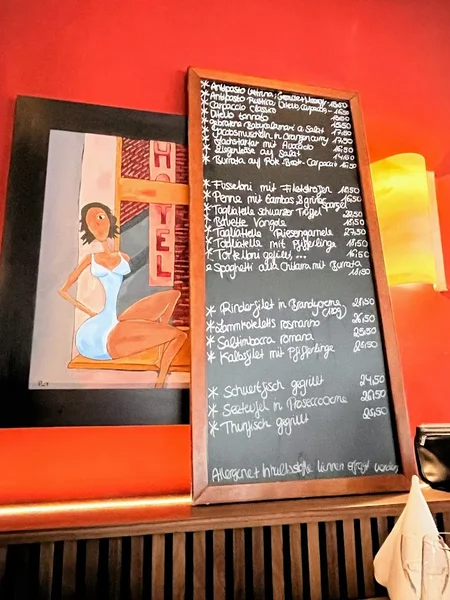 HOTEL
* Antipasto
* Antipasto Rustica
* Carpaccio Classico
* Vitello tonnato
* gebratene a Salat
* Jacobsmuscheln in Orangencurry 17,50
* mit Avocado
* auf Salat
* Burrata auf Rote Beet-Carpaccio 16,50
* Fusseloni mit Filetstreifen 18,50
* Penne mit Gambas & grüner Spargel
* Tagliatelle schwarzer Trüffel 22,50
* Bavette Vongole 18,50
* Tagliatelle Riesengarnele 27,50
* Tagliatelle mit Pfifferlinge 18,50
* Tortelloni gefüllt ... 16,50
* Spaghetti alla Chitarra mit Burrata
18,50
* Rinderfilet in Brandycreme
* Lammkoteletts romanno 26,50
* Saltimbocca romana 25,50
* Kalbsfilet mit Pfifferlinge
* Schwertfisch gegrillt 24,50
* Seeteufel in Proseccocreme 26,50
* Thunfisch gegrillt 25,50
Allergene + Inhaltsstoffe können erfragt werden